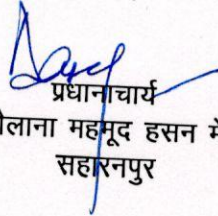 प्रधानाचार्य
महमूद हसन
सहारनपुर